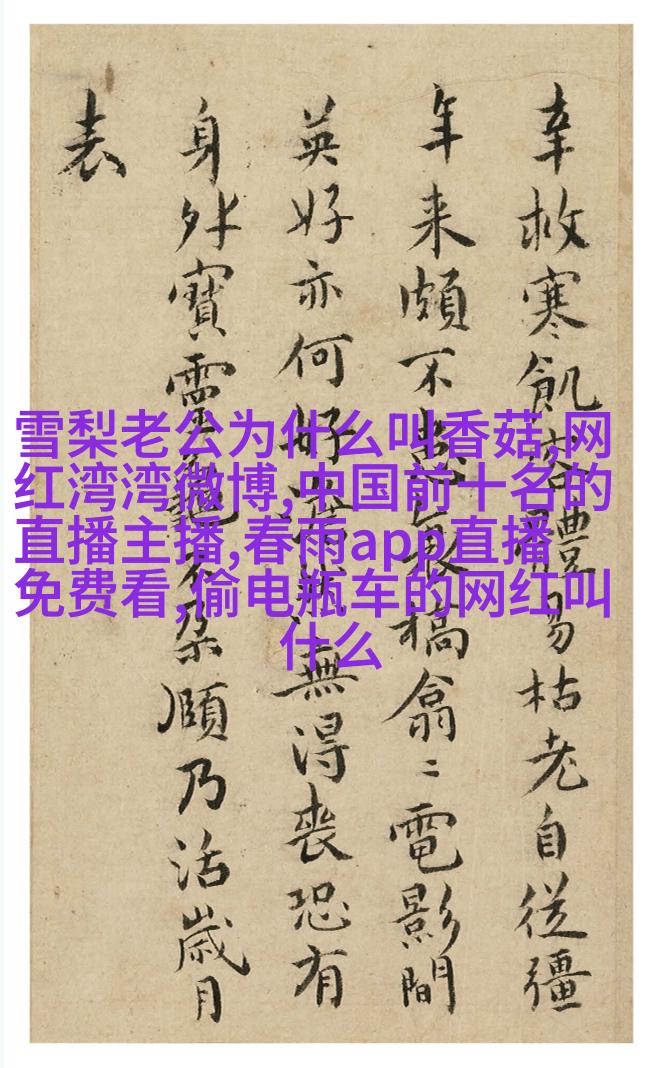 雪梨老公为什么叫香菇,网
红湾湾微博,中国前十名的
直播主播,春雨app直播
免费看,偷电瓶车的网红叫
什么
幸救寒飢體易枯老自從彊
年来頗不槁翕電影間
英好亦何好無得喪恐有
身外寶靈龜不朵頤乃活歲月
表